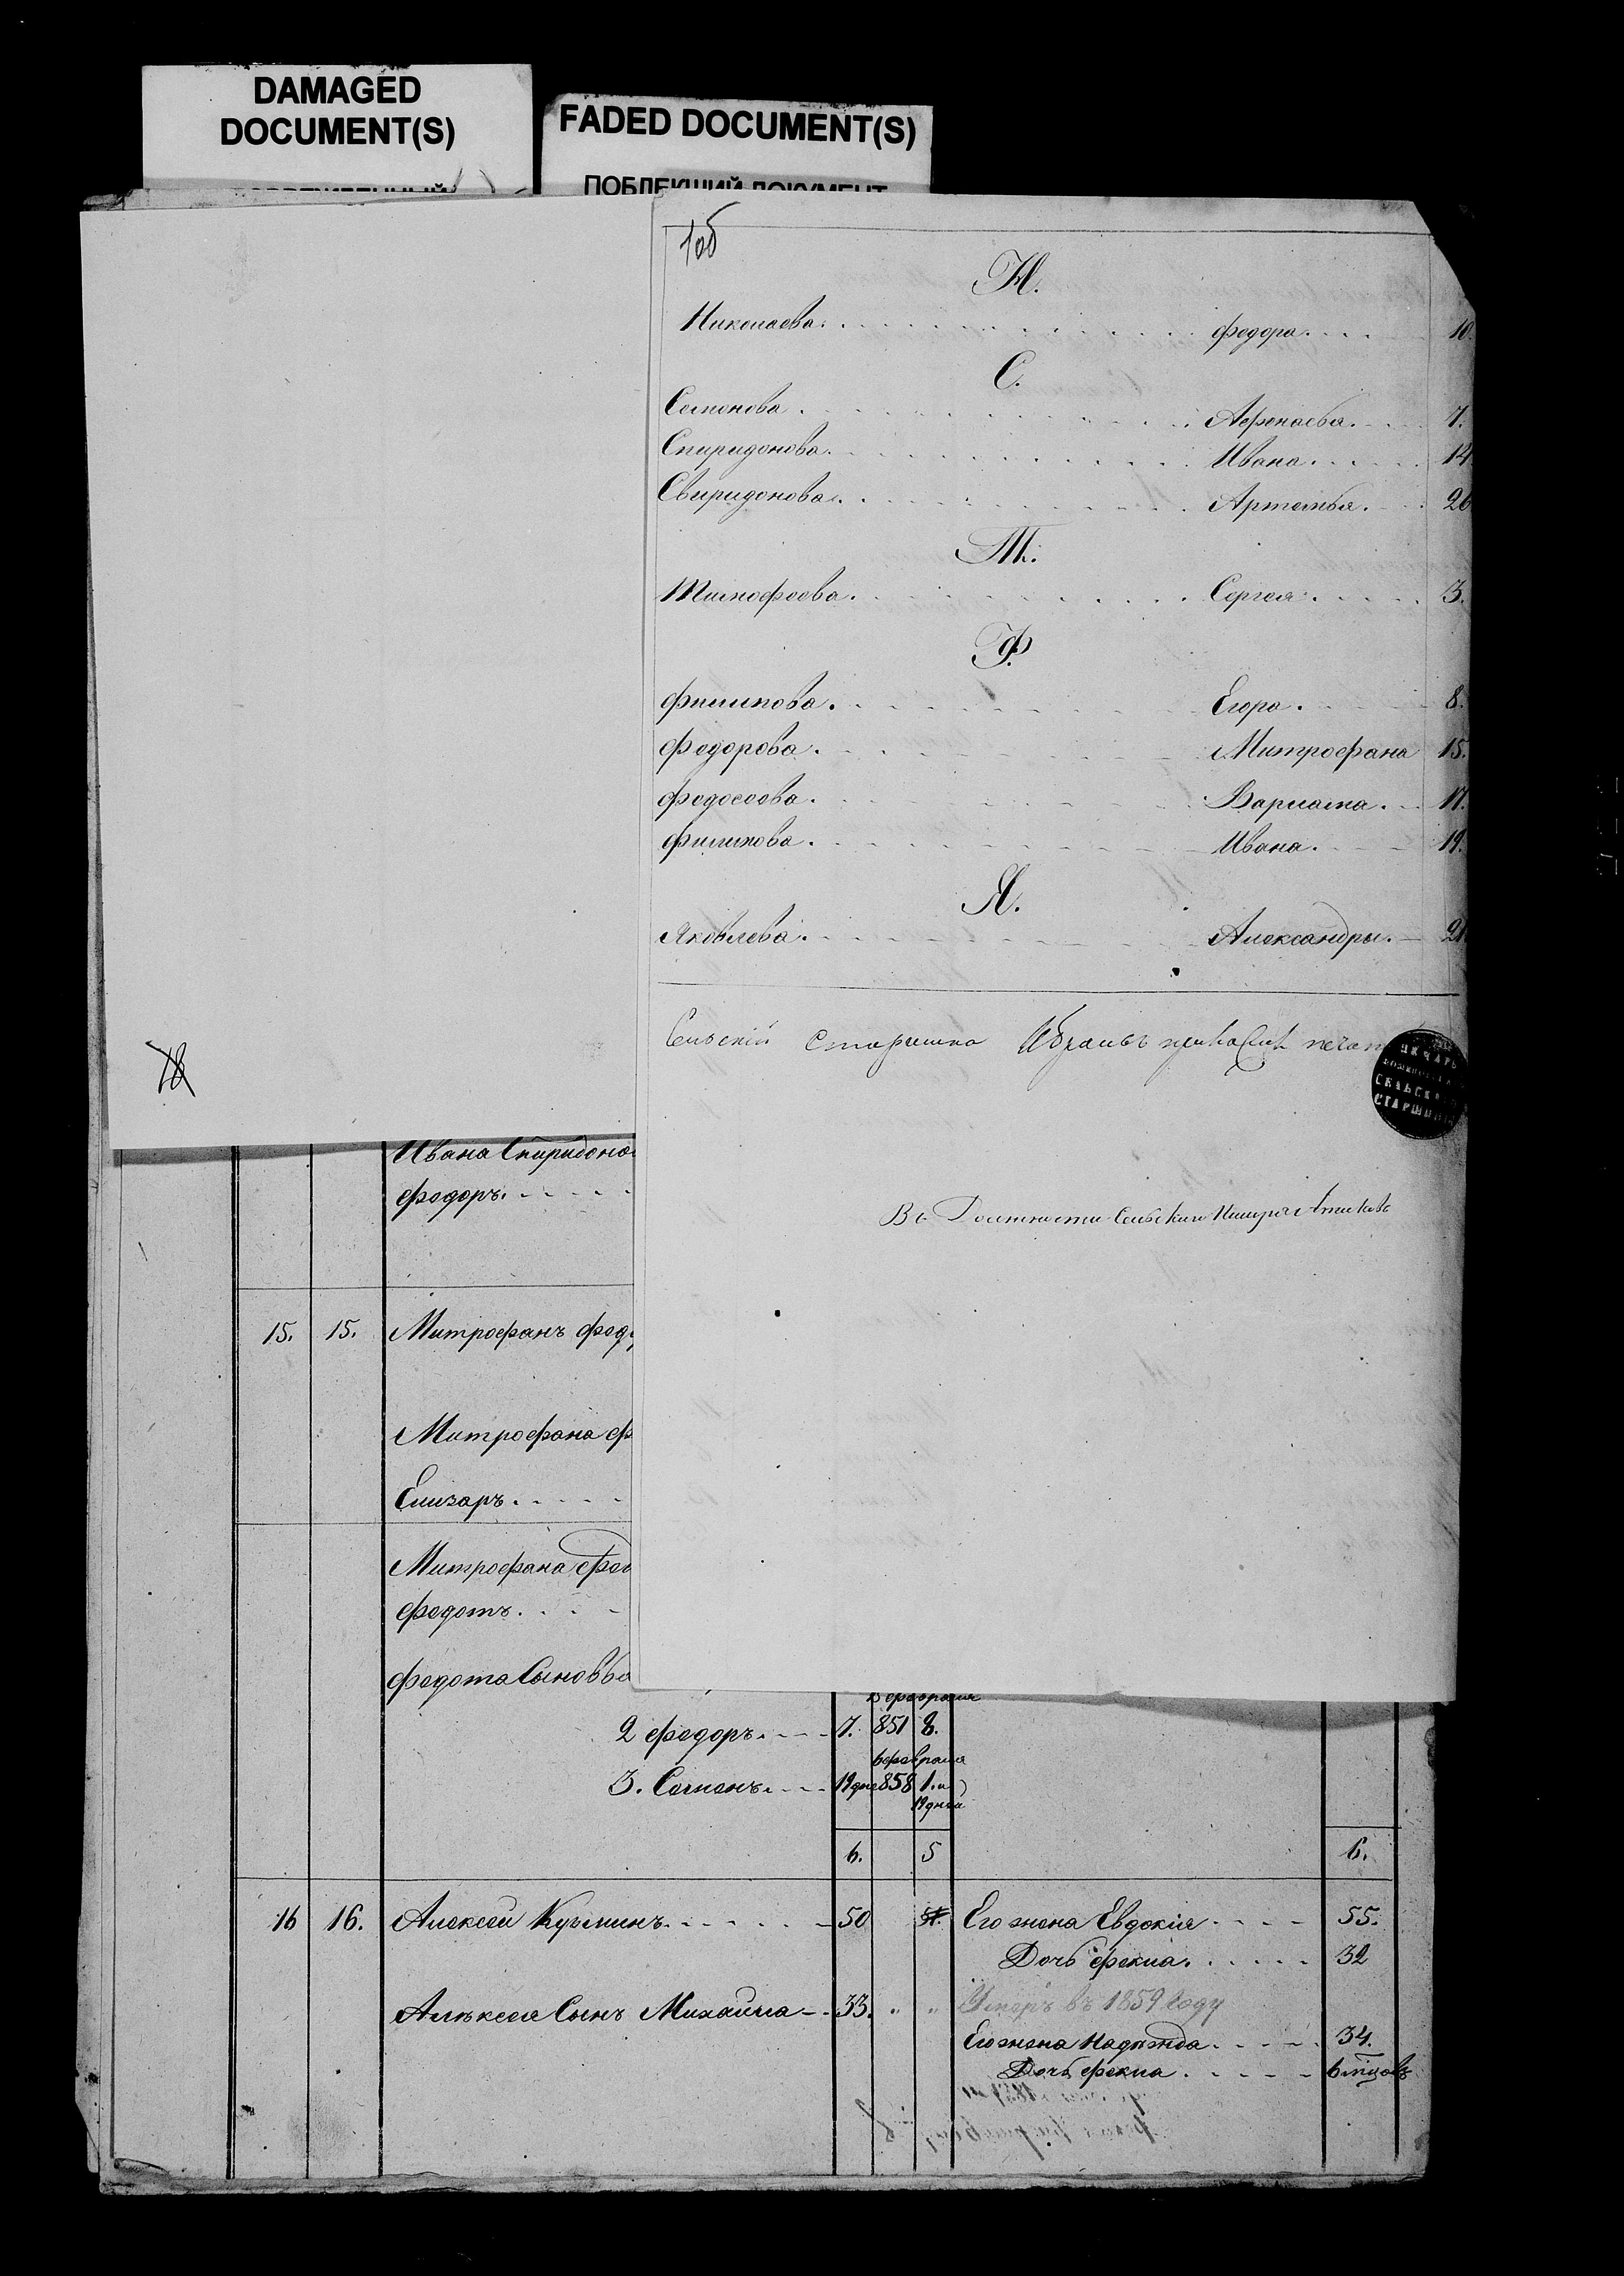 DAMAGED
DOCUMENT(S)
FADED DOCUMENT(S)
ПОБЛЕКШИЙ ДОКУМЕНТ
10б
Н.
Николаева. Федора. 10.
С.
Семенова. Аѳонасья. 7.
Спиридонова. Ивана. 14
Свиридонова. Артемья. 26
Т.
Тимофеева. Сергея. 3.
Ф.
Филипова. Егора. 8.
Федорова. Митрофана 15.
Федосеева. Варлама. 17.
Филипова. Ивана. 19.
Я.
Яковлева. Александры. 21
Сельскій старшина печать
ПЕЧАТЬ
СЕЛЬСКАГО
СТАРШИНЫ
Въ Должности Сельскаго Писаря
18
Ивана Спиридоно
Федоръ.
15. 15. Митрофанъ Фед
Митрофана Ф
Елизаръ.
Митрофана Фед
Федотъ.
Федота Сыновья
февраля
2 Федоръ. 7. 851 8.
6 февраля
3. Семенъ. 19 дне 858 1. и
19 дней
6. 5 6.
16 16. Алексей Кузминъ. 50 Его жена Евдокія 55.
Дочь Фекла. 32
Алексея Сынъ Михайла 33. " " Умеръ въ 1859 году
Его жена Надежда. 34.
Дочь Фекла. 6 мѣцовъ